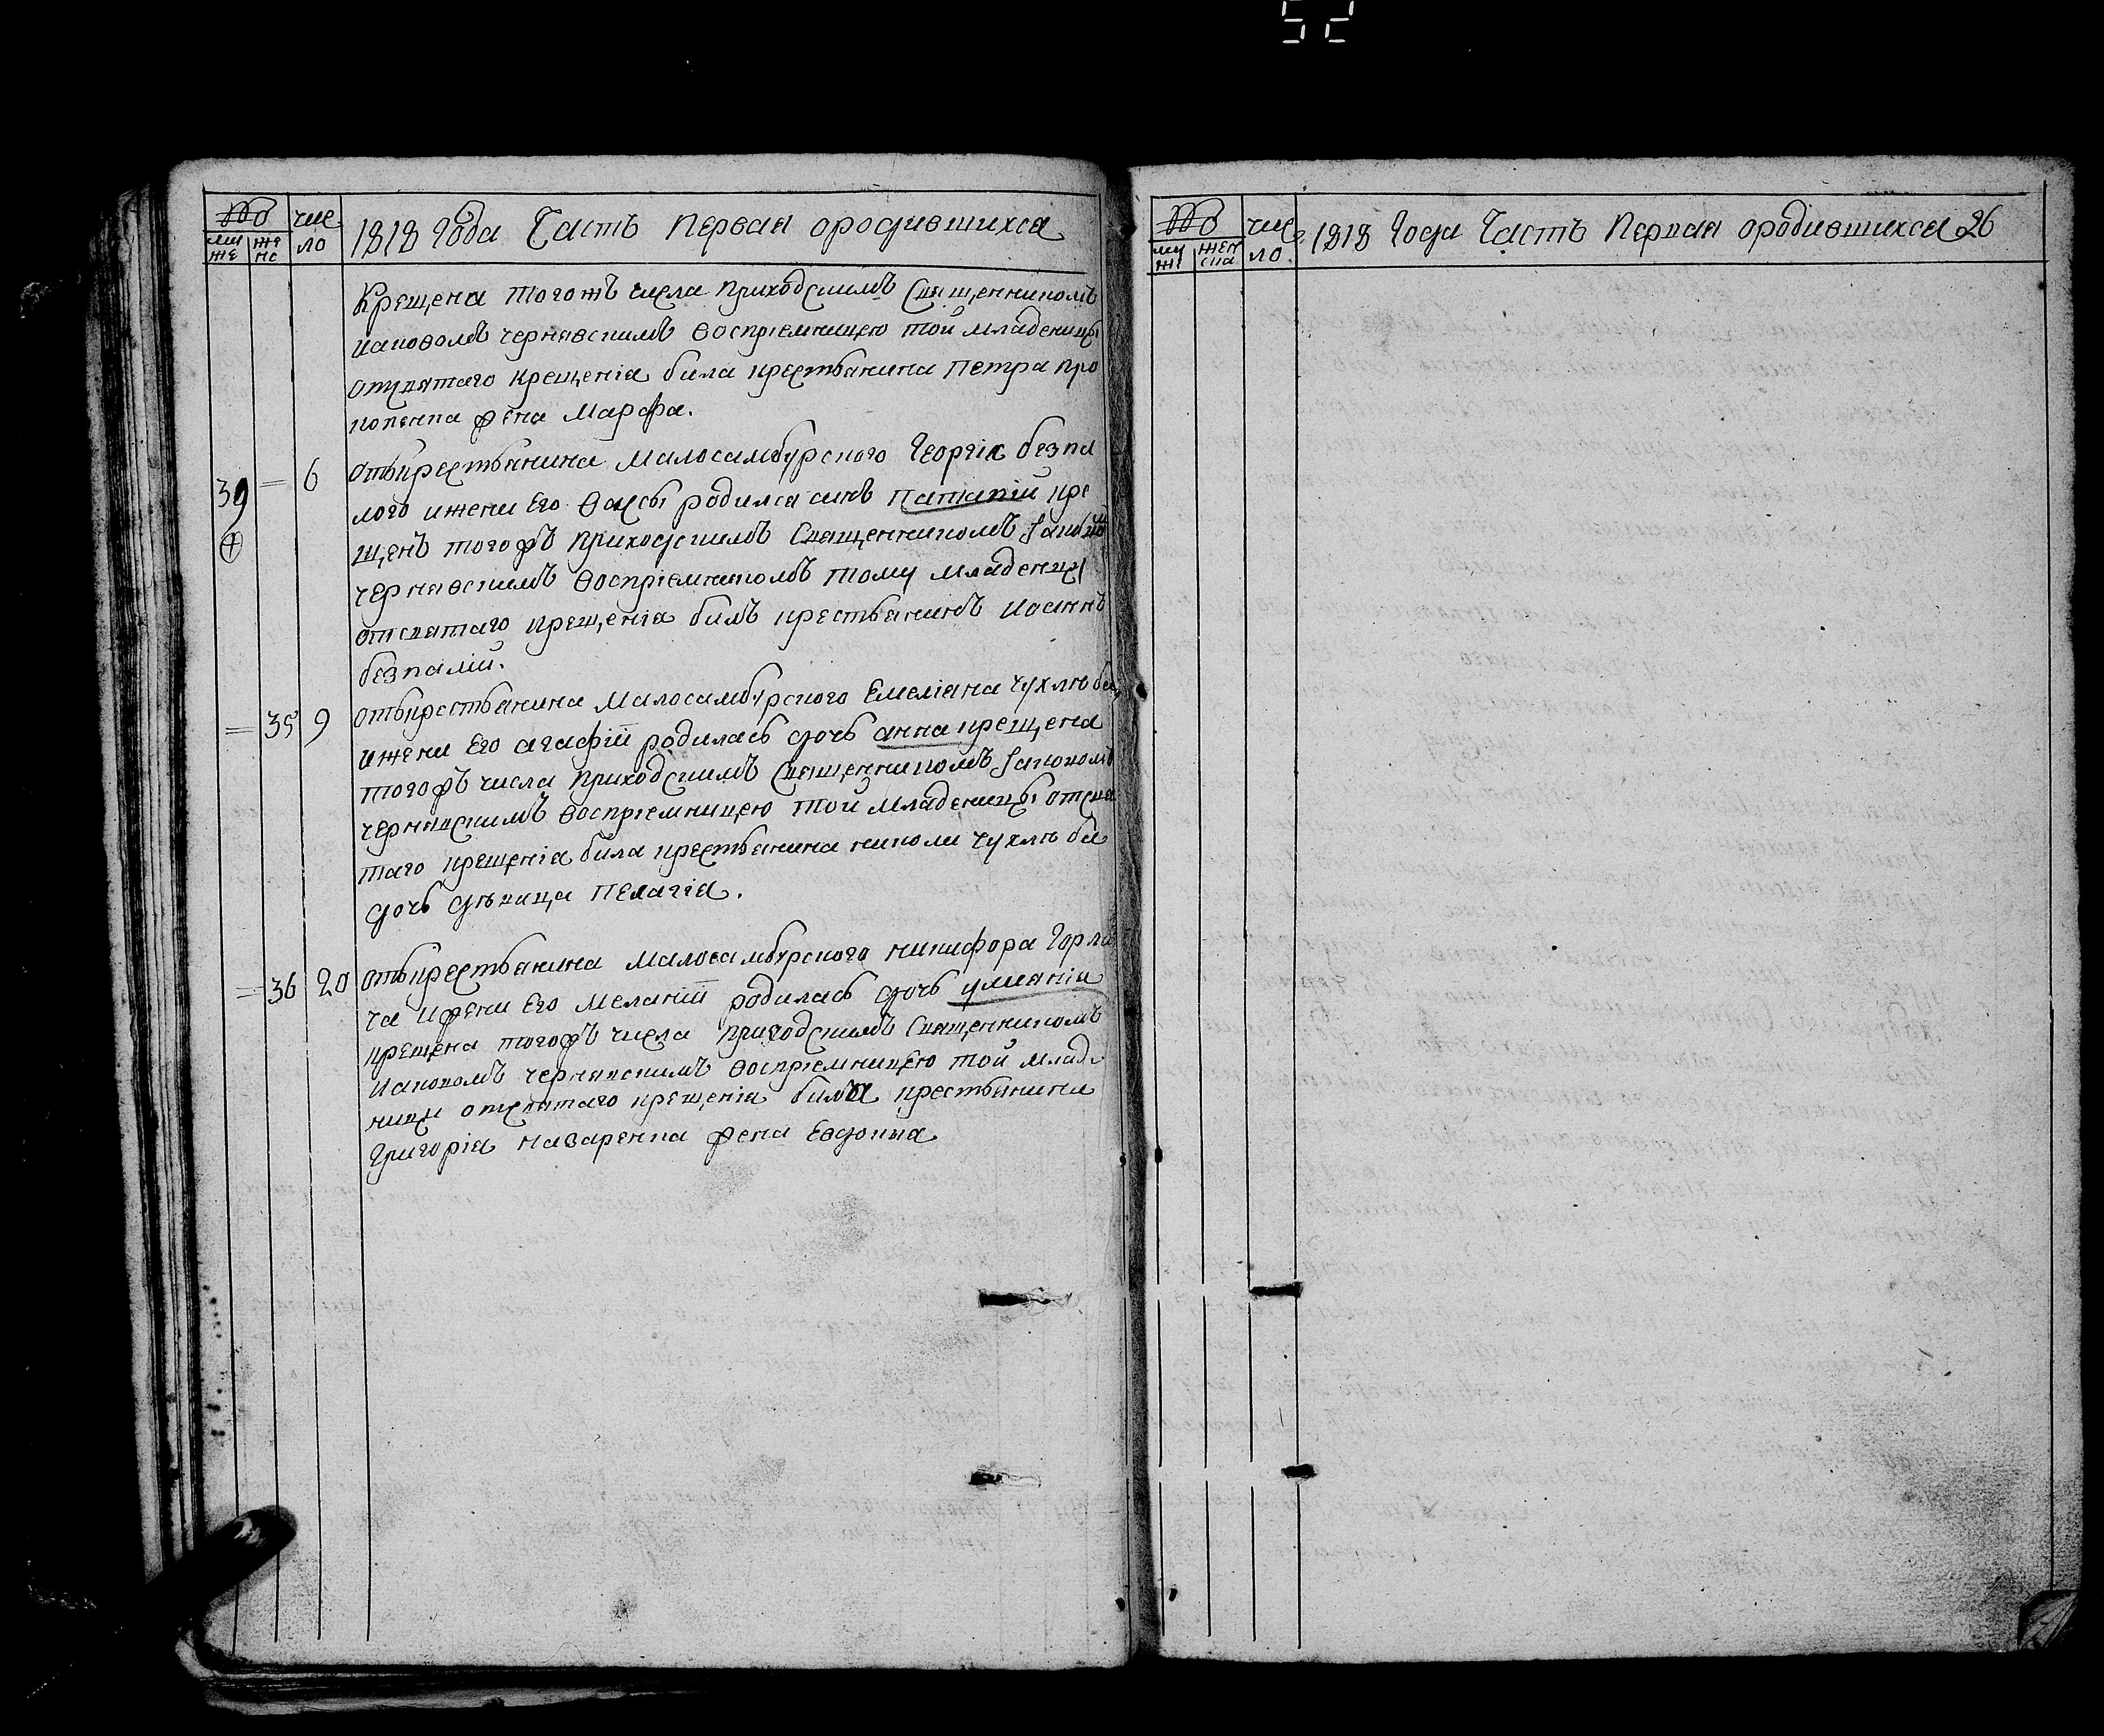 52
№№ чис
ло 1818 года Часть Первая ородившихся
му
же
же
нс
Крещена тогожъ числа Приходскимъ Священникомъ
Иаковомъ Чернявскимъ воспріемницею той младеницы
отсвятаго Крещенія била крестьянина Петра Про
копенка жена Марфа.
39 = 6 отькрестьянина Малосамбурского Георгія безпа
лого ижени Его Васси родился синъ Патапій кре
щенъ тогожъ Приходскимъ Священникомъ Іаковомъ
Чернявскимъ воспріемникомъ тому младенцу
отсвятаго крещенія билъ крестьянинъ Иоаннъ
безпалій.
= 35 9 отькрестьянина Малосамбурского Емеліана Чухлѣба
ижени Его агафіи родилась дочь анна крещена
тогожъ числа Приходскимъ Священникомъ Іаковомъ
Чернявскимъ воспріемницею той младеницы отсвя
таго крещенія била крестьянина николи Чухлѣба
дочь дѣвица Пелагія.
= 36 20 отькрестьянина Малосамбурского никифора Горла
ча ижени Его Меланіи родилась дочь улиянія
крещена тогожъ числа Приходскимъ Священникомъ
Иаковомъ Чернявскимъ воспріемницею той млад
ници отсвятаго крещенія била крестьянина
Григорія назаренка жена Евдокия
№№ чис
ло 1818 Года Часть Первая ородившихся 26
му
же
жен
ска